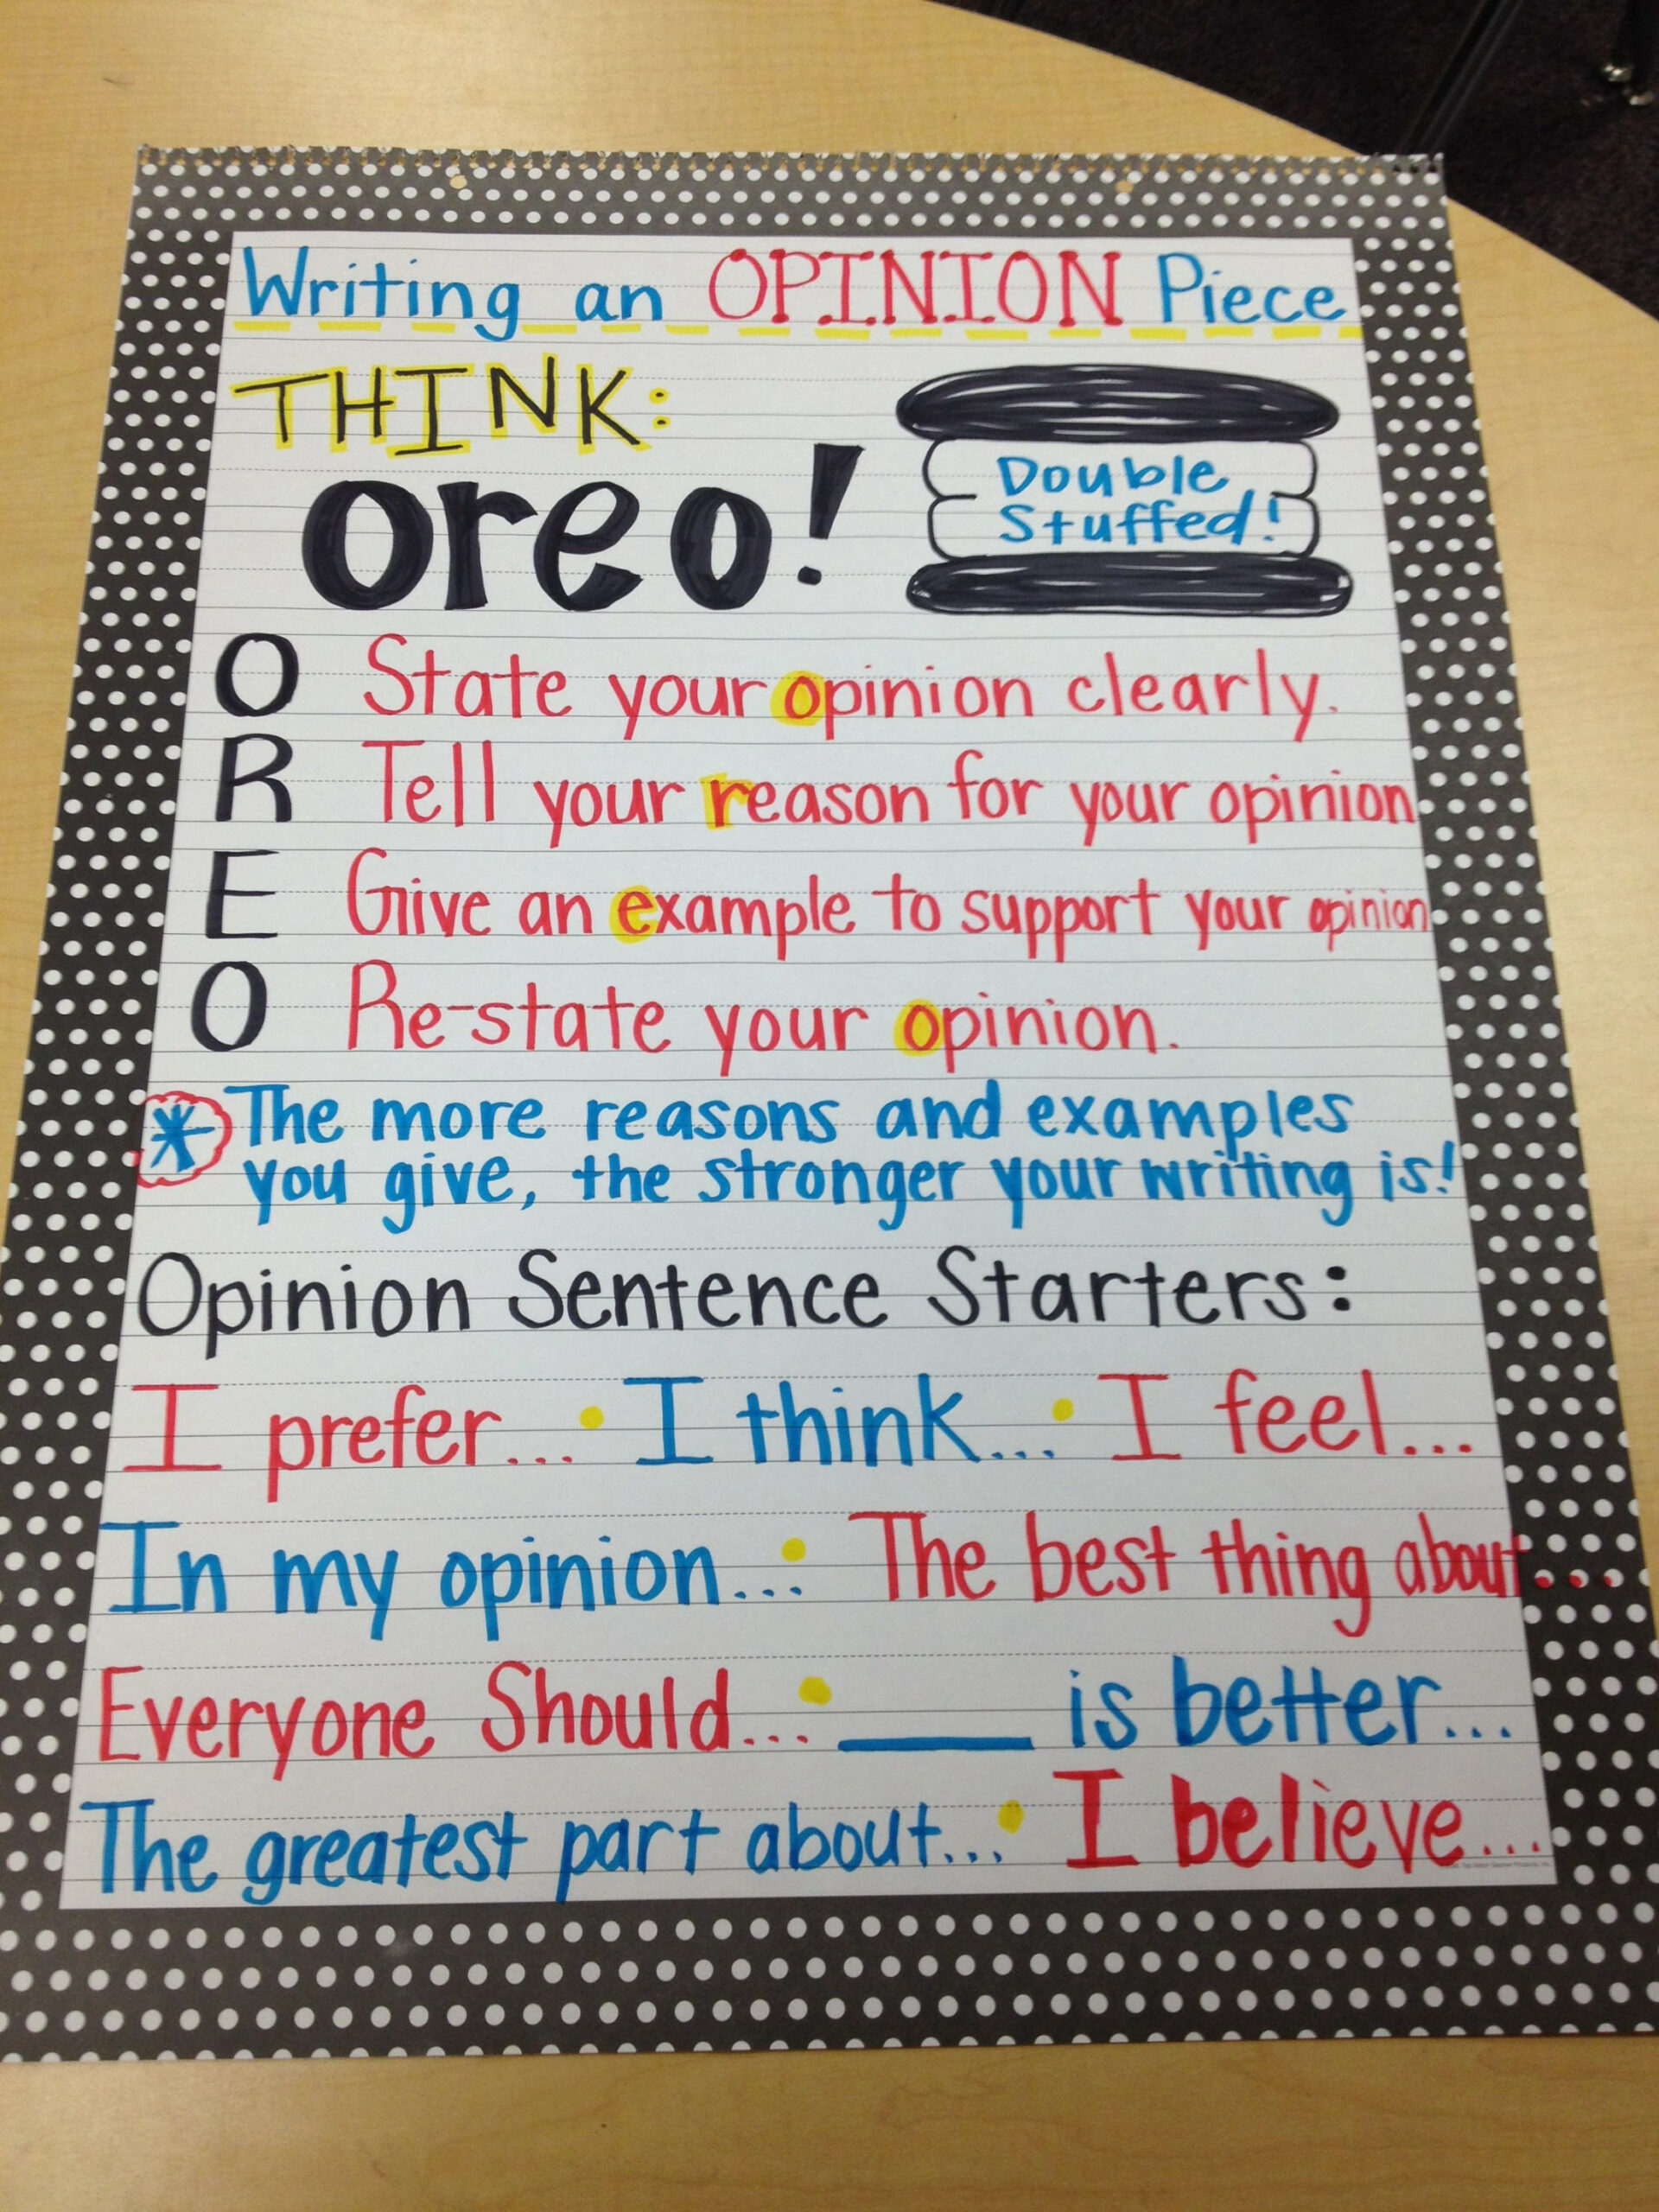 Writing an OPINION Piece
THINK:
oreo!
Double
Stuffed!
O State your opinion clearly.
R Tell your reason for your opinion
E Give an example to support your opinion
O Re-state your opinion.
* The more reasons and examples
you give, the stronger your writing is!
Opinion Sentence Starters:
I prefer... • I think... • I feel...
In my opinion... • The best thing about...
Everyone Should... • ____ is better...
The greatest part about... • I believe...